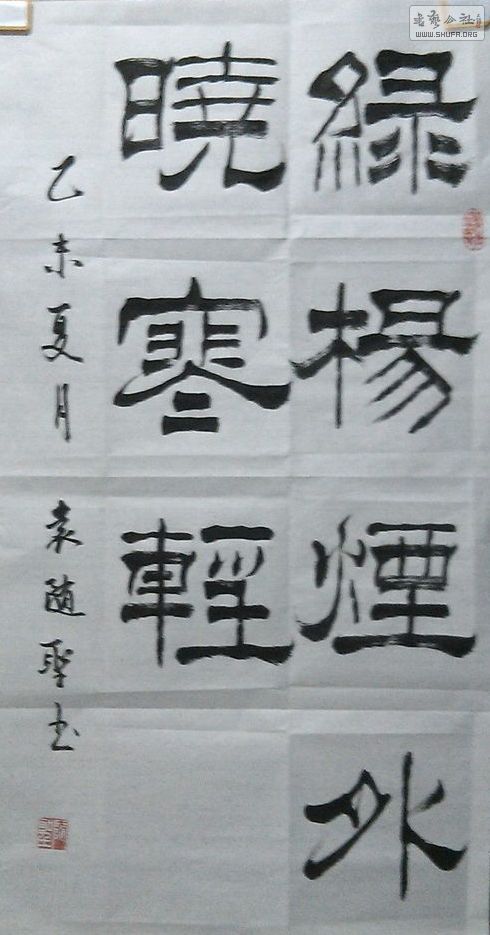 綠楊煙外
曉寒輕
乙未夏月 袁随聖书
書藝公社
WWW.SHUFA.ORG